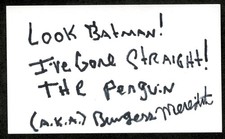 Look Batman!
I've Gone Straight!
The Penguin
(A.K.A.) Burgess Meredith